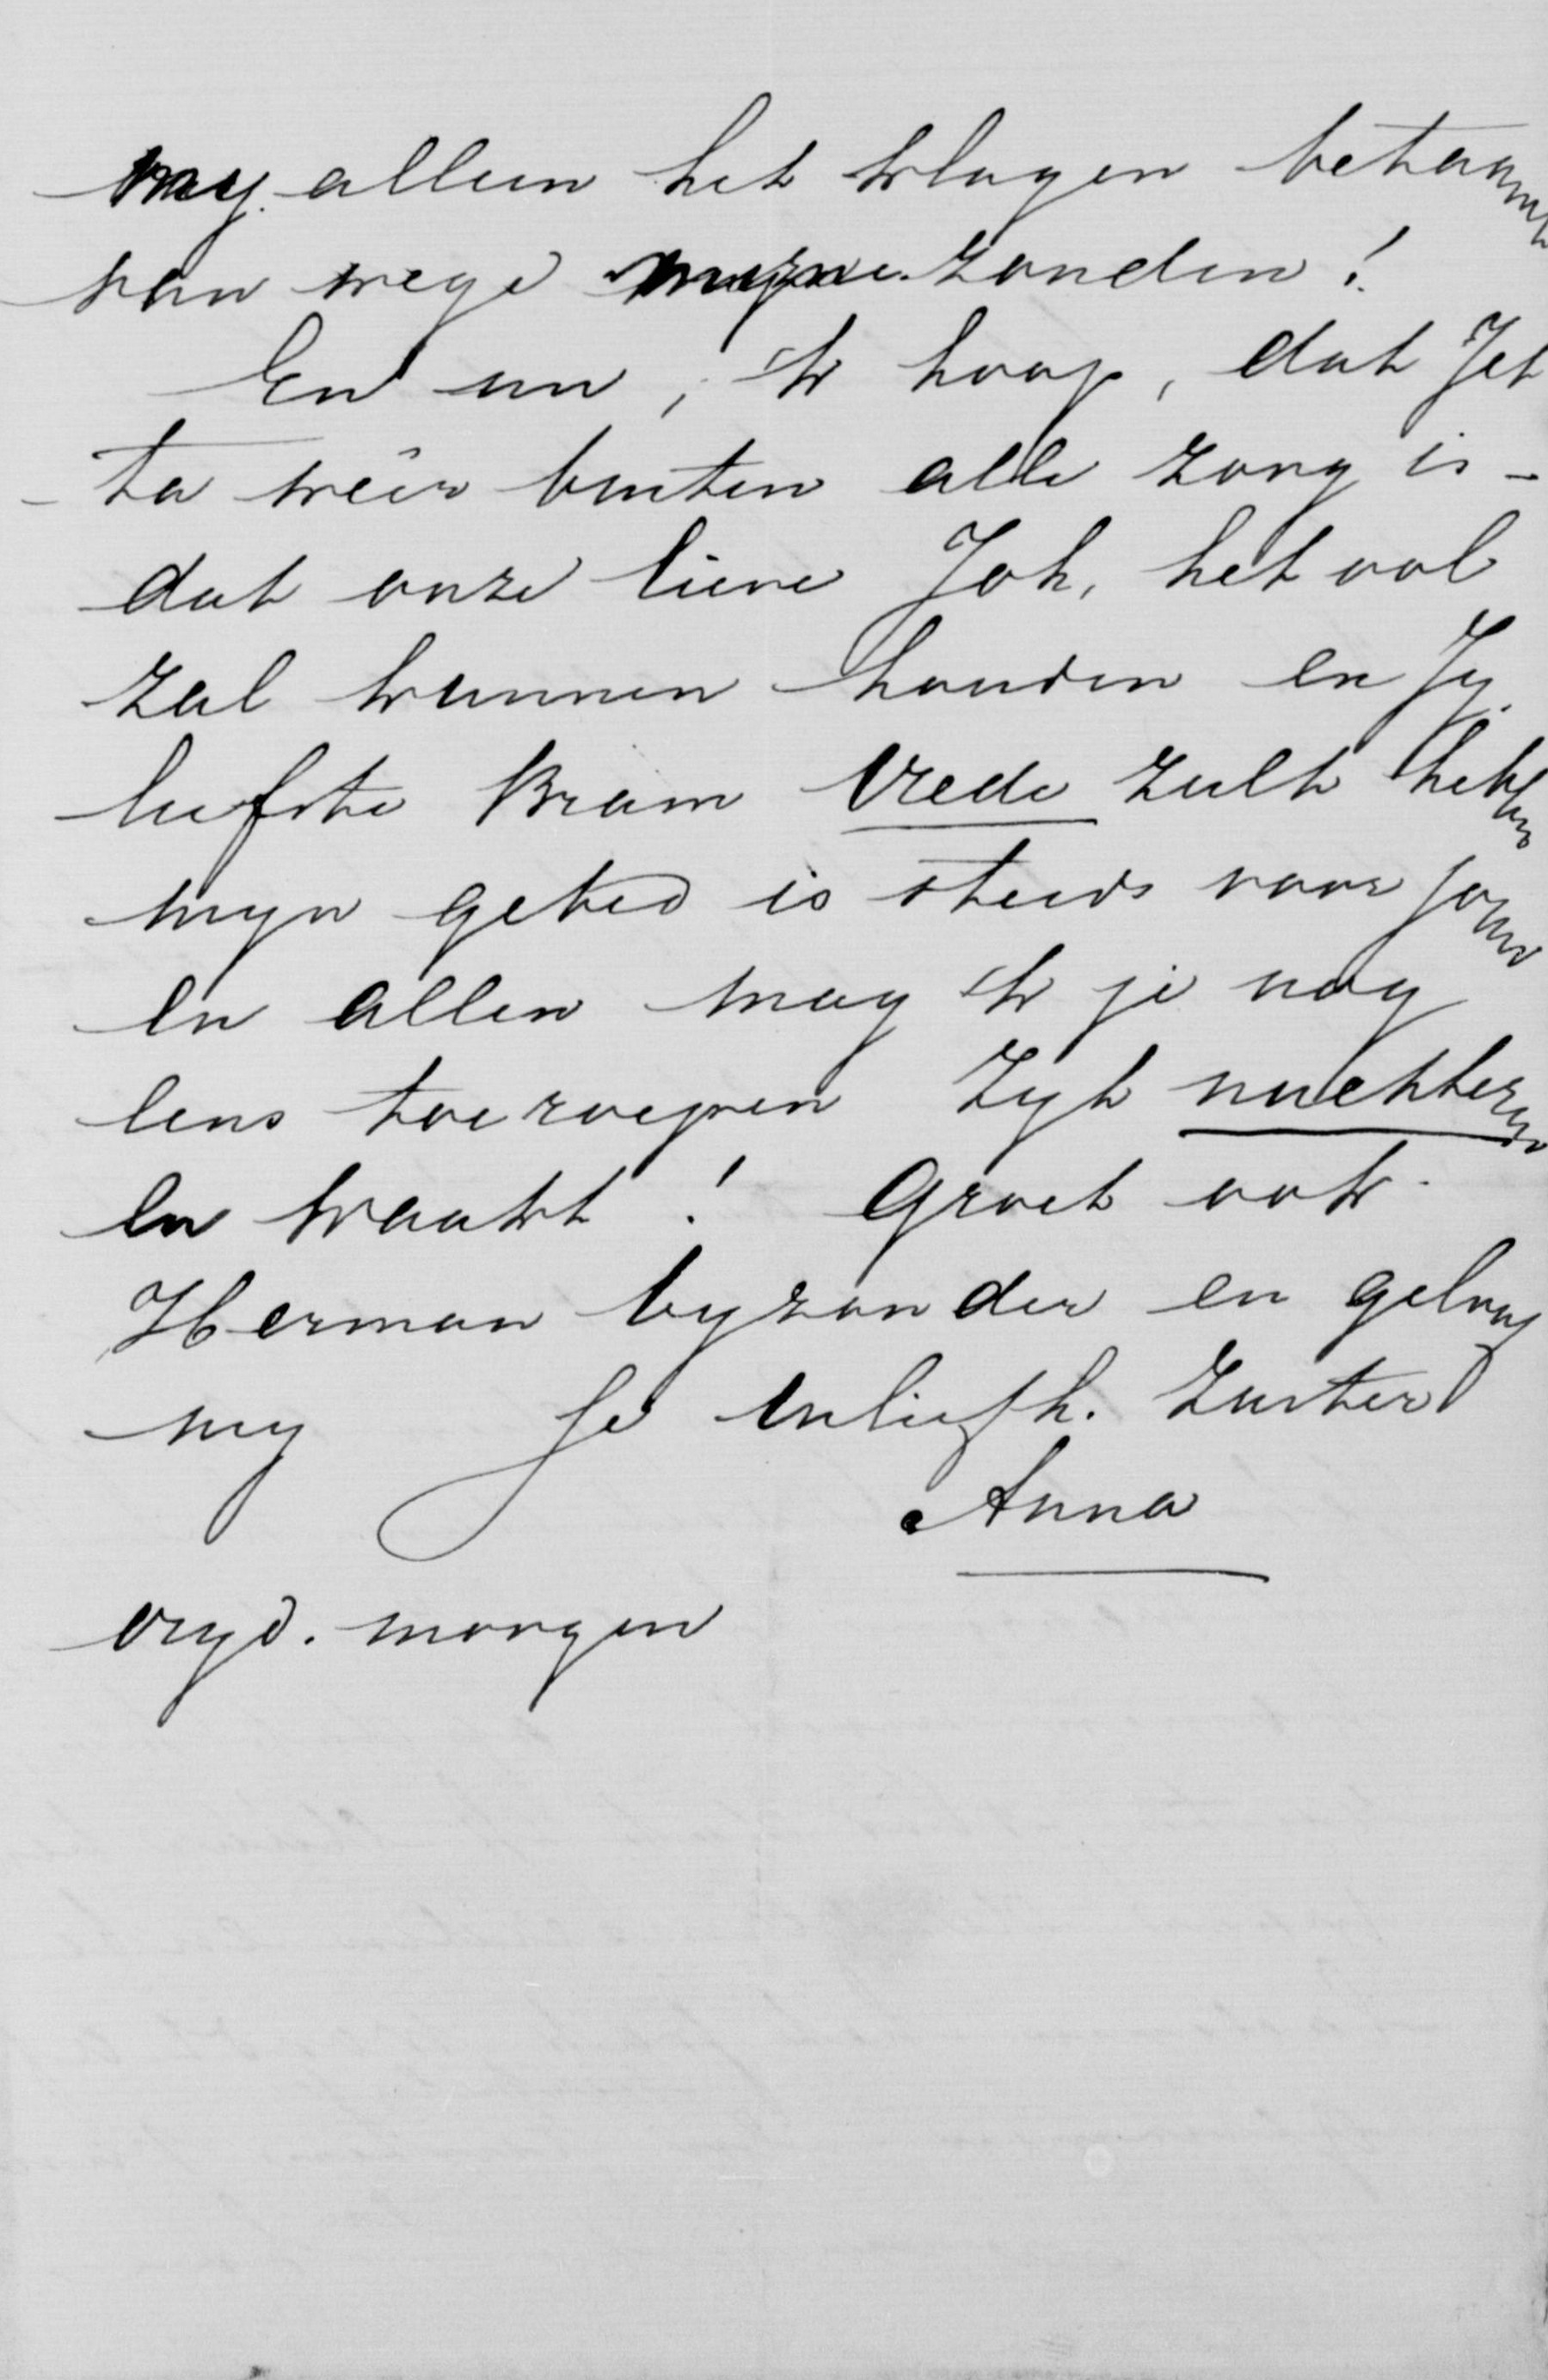 my alleen het klagen betaamt
van wege myne zonden!
En nu, ik hoop, dat Jet
ta weêr buiten alle zorg is -
dat onze lieve Joh, het vol
zal kunnen houden en Jy
liefste Bram vrede zult hebben
myn gebed is steeds voor jou
en allen mag ik je nog
eens toeroepen Zyt nuchteren
en waakt! Groet ook
Herman byzonder en geloof
my Je enliefh. Zuster
Anna
vryd. morgen